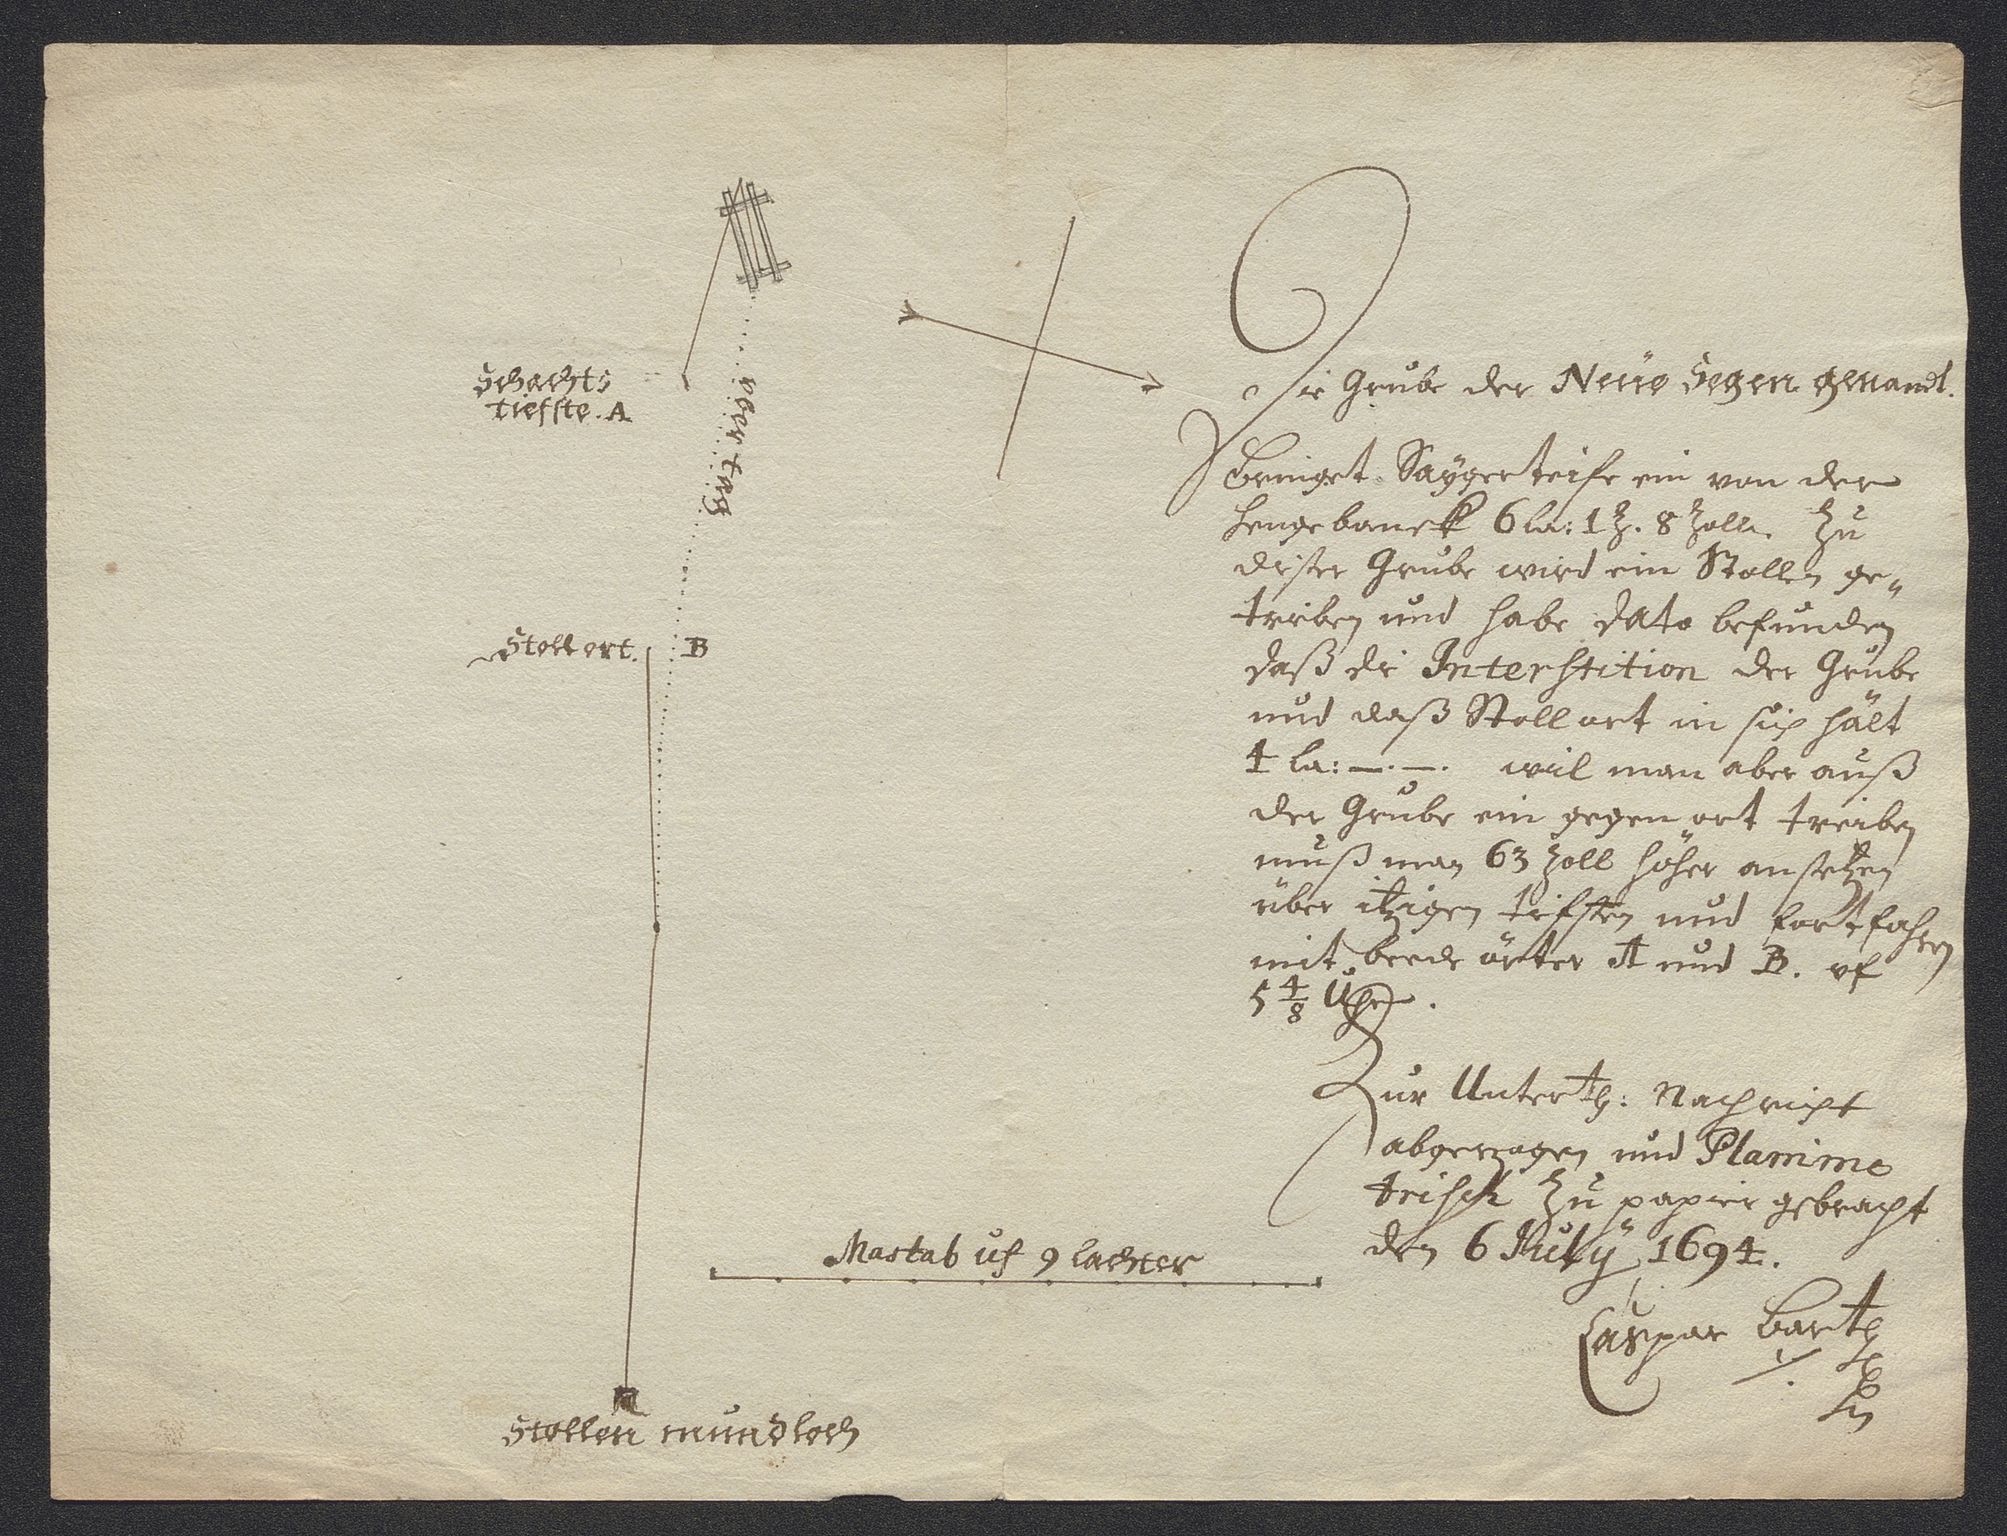 Schachts
tieffste. A
über tag
Stoll ort. B
Stollen mundloch
Mastab uf 9 lachter
Die Grube der Neüe Segen genandt.
bringet Saÿger teife ein von der
hengebanck 6 la: 1 z. 8 zoll. Zu
diser Grube wird ein Stollen ge„
triben und habe dato befunden
daß die Interstition der Grube
und daß Stoll ort in sich hält
4 la: —. —. wil man aber auß
der Grube ein gegen ort treiben
muß man 63 zoll höher ansetzen
über itzigen tifsten und fortfahren
mit beede örter A und B. uf
5 4/8 Uhr.
Zur Unterth: Nachricht
abgezogen und Planime
trisch zu papier gebracht
den 6 Julÿ 1694.
Caspar Barth